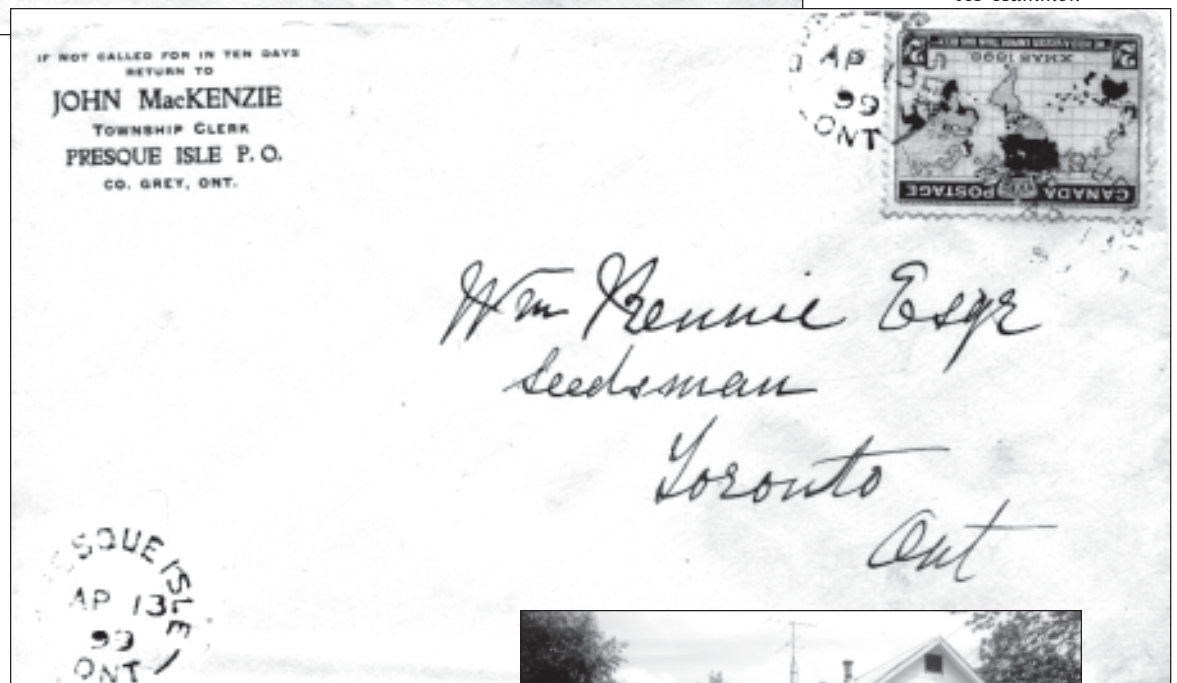 IF NOT CALLED FOR IN TEN DAYS
RETURN TO
JOHN MacKENZIE
TOWNSHIP CLERK
PRESQUE ISLE P. O.
CO. GREY, ONT.
AP 13
99
ONT
XMAS 1898
CANADA POSTAGE
Wm Rennie Esqr
Seedsman
Toronto
Ont
SQUE ISLE
AP 13
99
ONT